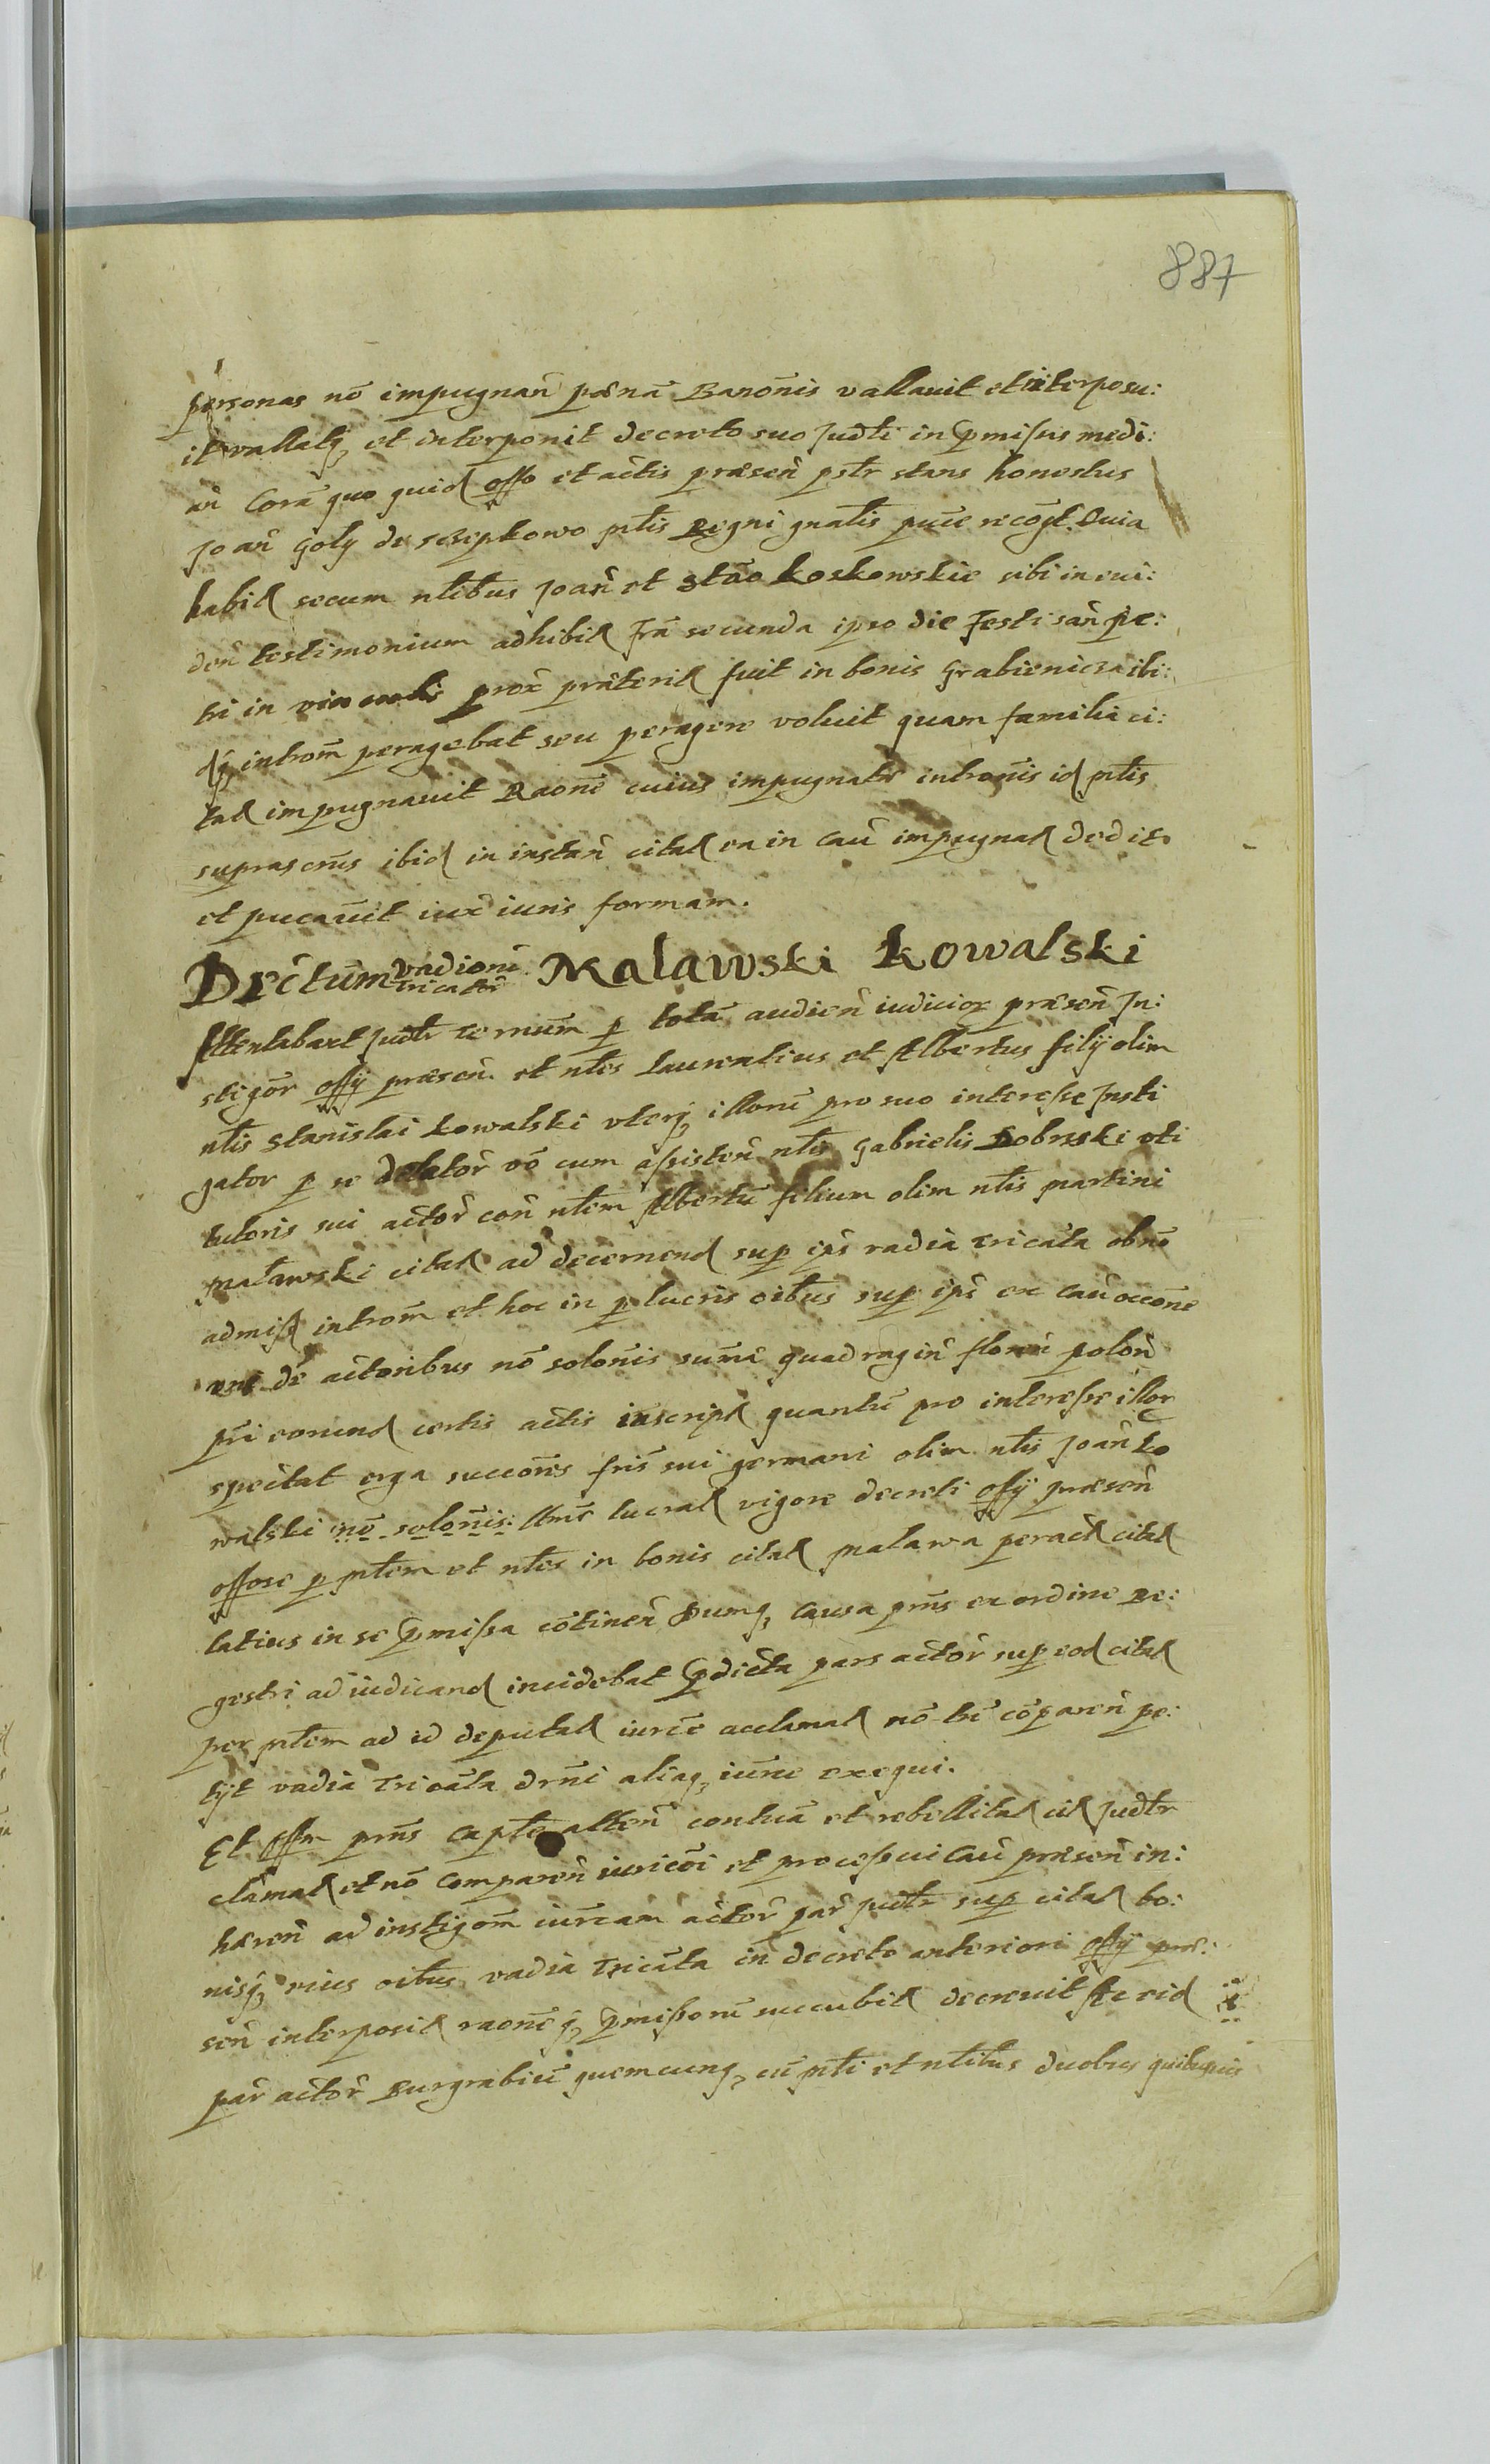 887
personas nō impugnañ pœnā Banōnis vallavit et interposu:
it vallatq₃ et interponit decreto suo Judłi in p̄missis medi:
añ Corā quo quid offo et actis præseñ pstr stans honestus
Joañ Goły de sczepkowo mtlis Regni gnałis pūce recōgt. Quia
habił secum nłibus Joañ et Stāo Koskowskie sibi in evi:
deñ testimonium adhibił frā secunda ipso die Festi sañ Pe:
tri in vinculis prox̃ præterił fuit in bonis Grabienicza ibi:
dq₃ introm̃ peragebat seu peragere voluit quam familia ci:
tał impugnavit Raōne cuius impugnatæ introñis id mtlis
suprascrūs ibid in instañ citał ea in cau impugnał dedit
et pucāvit iux̃ iuris formam.
Drctum vadioñ tricator̃ Malawski Kowalski
Attentabant Judłr termūm p totā audień iudicior præseñ In:
stigōr offij præseñ et nłes Laurentius et Albertus filij olim
nłis Stanislai Kowalski uterq₃ illorū pro suo interesse Insti
gator p se delator̃ vō cum assisteñ nłis Gabrielis Dobrski uti
tutoris sui actor̃ coñ nłem Albertū filium olim nłis Martini
Malawski citał ad decernend sup ips vadia tricāta obnō
admiss introm̃ et hoc in p lucris oibus sup ips ex cau occōne
actoribus nō solōnis sūmæ quadragiñ floreñ poloñ
pri eorund certis actis inscript quantū pro interesse illor
spectat erga succōnes fris sui germani olim nłis Joañ Ko
walski nō solōnis: lucrał vigore decreti offij præseñ
offose p mtlem et nłes in bonis citał Malawa peract citał
latius in se p̄missa cōtineñ Dumq₃ causa pñs ex ordine Re:
gestri ad iudicand incidebat p̄dicta pars actor̃ sup eod citał
per mtlem ad id deputał iurce acclamał nō tn̄ cōpareñ pe:
tijt vadia tricāta drni aliaq₃ iurne exequi.
Et Offm pñs Capłe atteñ contuā et rebellitał cit Judłr
clāmał et nō compareñ iuricōi et processui cau præseñ in:
hæreñ ad instigōm iurcam actor̃ par̃ Judłr sup citał bo:
nisq₃ eius oibus vadia tricāta in decreto anteriori offij præ:
señ interposił raōneq₃ p̄missorū succubił decrevit Ac eid
par̃ actor̃ Burgrabiū quemcunq₃ cū mtli et nłibus duobus quibusvis